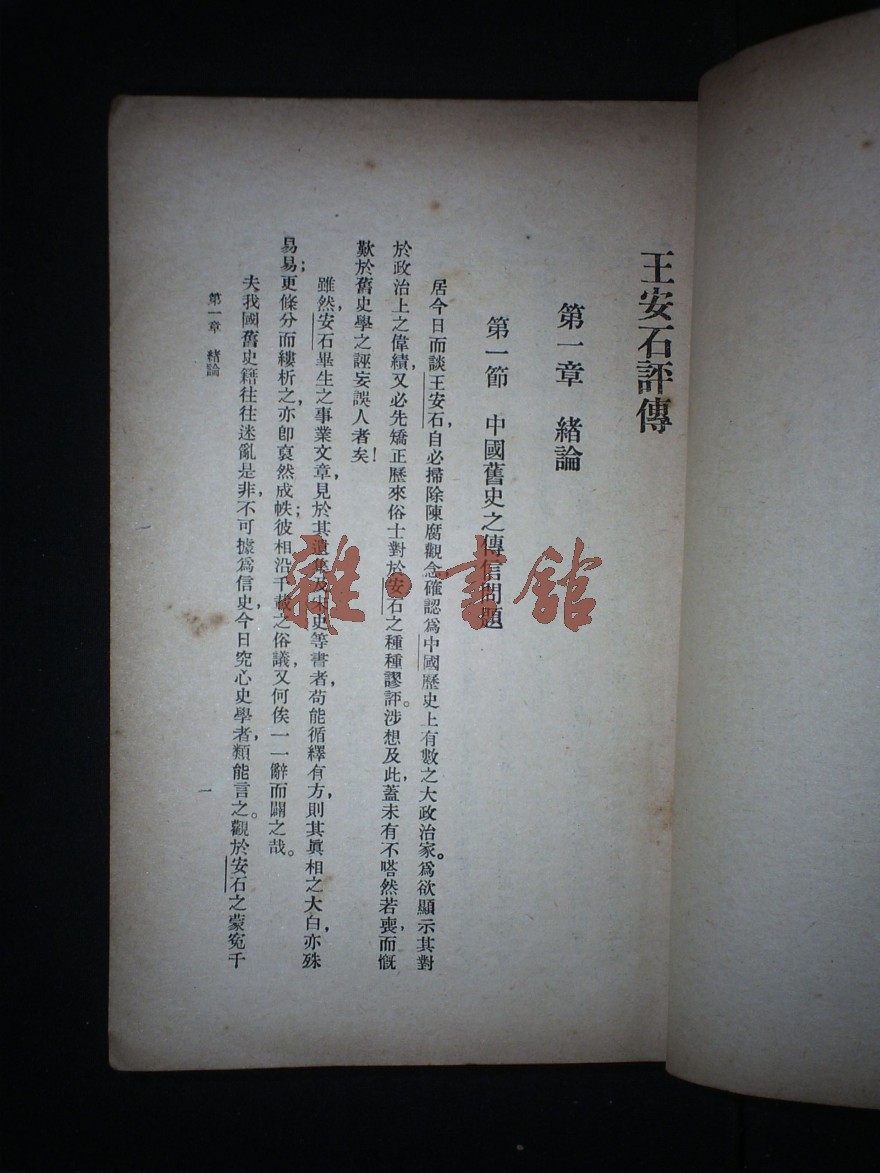 王安石評傳
第一章　緒論
第一節　中國舊史之傳信問題
居今日而談王安石，自必掃除陳腐觀念，確認爲中國歷史上有數之大政治家。爲欲顯示其對
於政治上之偉績，又必先矯正歷來俗士對於安石之種種謬評。涉想及此，蓋未有不嗒然若喪，而慨
歎於舊史學之誣妄誤人者矣！
雖然，安石畢生之事業文章，見於其遺集及宋史等書者，苟能循繹有方，則其眞相之大白，亦殊
易易；更條分而縷析之，亦卽裒然成帙；彼相沿千載之俗議，又何俟一一辭而闢之哉。
夫我國舊史籍往往迷亂是非，不可據爲信史，今日究心史學者，類能言之。觀於安石之蒙冤千
第一章　緒論
一
雜·書館